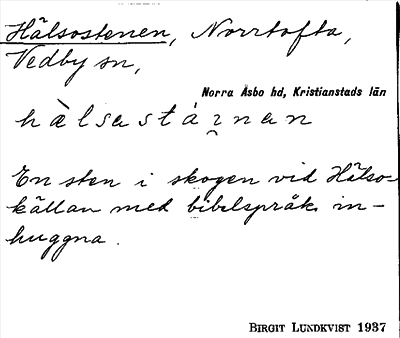 Hälsostenen, Norrtofta,
Vedby sn,
Norra Åsbo hd, Kristianstads län
hàlsastáɪ̯nan
En sten i skogen vid Hälso-
källan med bibelspråk in-
huggna.
BIRGIT LUNDKVIST 1937